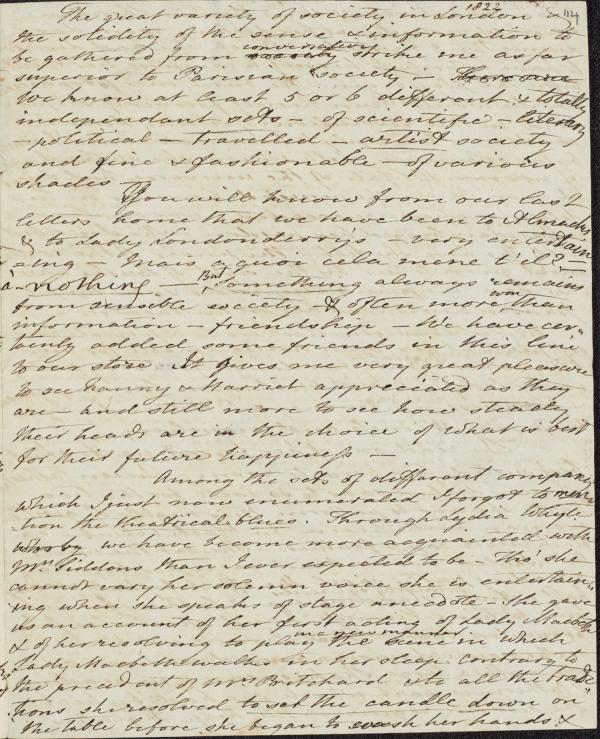 1822 114
The great variety of society in London &
the solidity of the sense & information to
be gathered from society conversation strike me as far
superior to Parisian society – There are
We know at least 5 or 6 different & totally
independant sets – of scientific – literary
– political – travelled – artist society
and fine & fashionable – of various
shades –
You will know from our last
letters home that we have been to Almacks
& to Lady Londonderrys – very entertain
=ing – mais a quoi cela mene t'il? –
à nothing – But something always remains
from sensible society – & often more won than
information – friendship – We have cer=
tainly added some friends in this line
to our store. It gives me very great pleasure
to see Fanny & Harriet appreciated as they
are – and still more to see how steady
their heads are in the choice of what is best
for their future happiness –
Among the sets of different company
which I just now enumerated I forgot to men
=tion the theatrical blues. Through Lydia White
who by we have become more acquainted with
Mrs Siddons than I ever expected to be. Tho' she
cannot vary her solemn voice she is entertain=
ing when she speaks of stage anecdote – She gave
us an account of her first acting of Lady Macbeth
& of her resolving to play in a new manner the scene in which
Lady Macbeth walks in her sleep contrary to
the precedent of Mrs Pritchard & to all the tradi=
tions she resolved to set the candle down on
the table before she began to wash her hands &